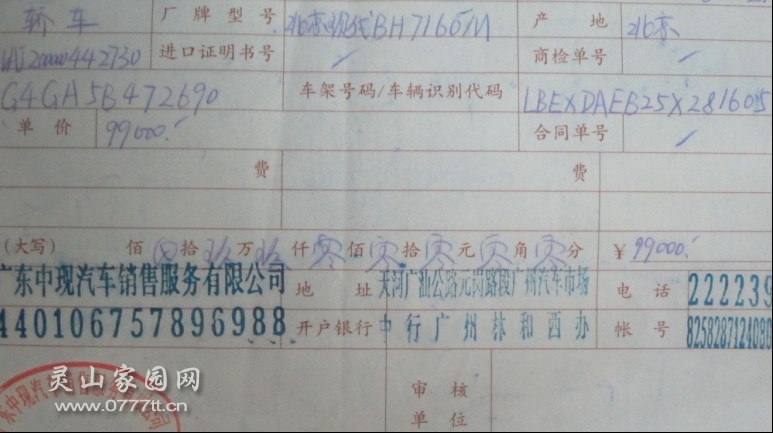 轿车 厂牌型号 北京现代BH7160M 产地 北京
进口证明书号 / 商检单号 /
G4GA5B472690 车架号码/车辆识别代码 LBEXDAEB25X281605
单价 99000.- 合同单号 /
费 费
(大写) 佰 拾 玖 万 玖 仟 零 佰 零 拾 零 元 零 角 零 分 ¥ 99000.-
广东中现汽车销售服务有限公司 地址 天河广汕公路元岗路段广州汽车市场 电话 222239
440106757896988 开户银行 中行广州林和西办 帐号 8258287124080
东中现汽车销售服务有限公司
审核
单位
灵山家园网
www.0777tt.cn